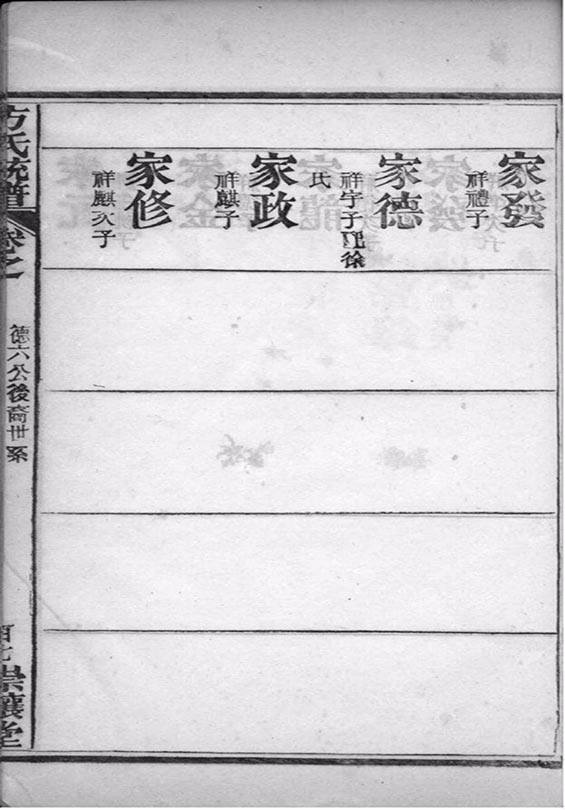 家發
祥禮子
家德
祥宇子配徐
氏
家政
祥麒子
家修
祥麒次子
方氏統譜
卷之
德六公後裔世系
百七
堂